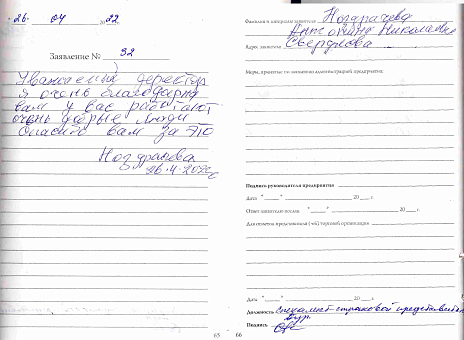 "26" 04 2022
Заявление № 92
Уважаемый директор
я очень благодарна
вам у вас работают
очень добрые люди
Спасибо вам за это
Ноздрачева
26.4.2022г
65
Фамилия и инициалы заявителя Ноздрачева
Антонина Николаевна
Адрес заявителя Свердлова
Меры, принятые по заявлению администрацией предприятия:
Подпись руководителя предприятия
Дата "____" ________ 20___ г.
Ответ заявителю послан "____" ________ 20___ г.
Для отметки представителя (-ей) торговой организации
Дата "____" ________ 20___ г.
Должность специалист страховой представитель
Подпись
66